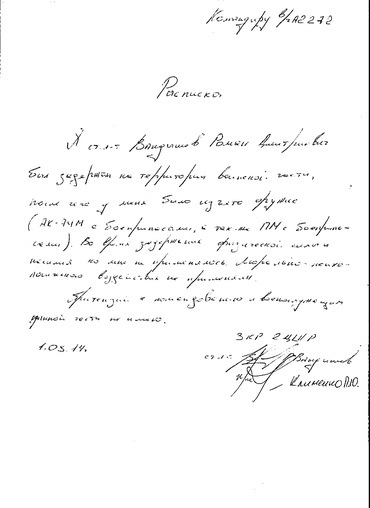 Командиру в/ч А2272
Расписка
Я ст. л-т Вандышов Роман Дмитриевич
был задержан на территории воинской части,
после чего у меня было изъято оружие
(АК-74М с боеприпасами, а так-же ПМ с боеприпа-
сами). Во время задержания физической силы и
насилия ко мне не применялось. Морально-психо-
логического воздействия не применяли.
Претензии к командованию и военнослужащим
данной части не имею.
ЗКР
1.03.14.
ст. л-т Вандышов
Клименко П.Ю.